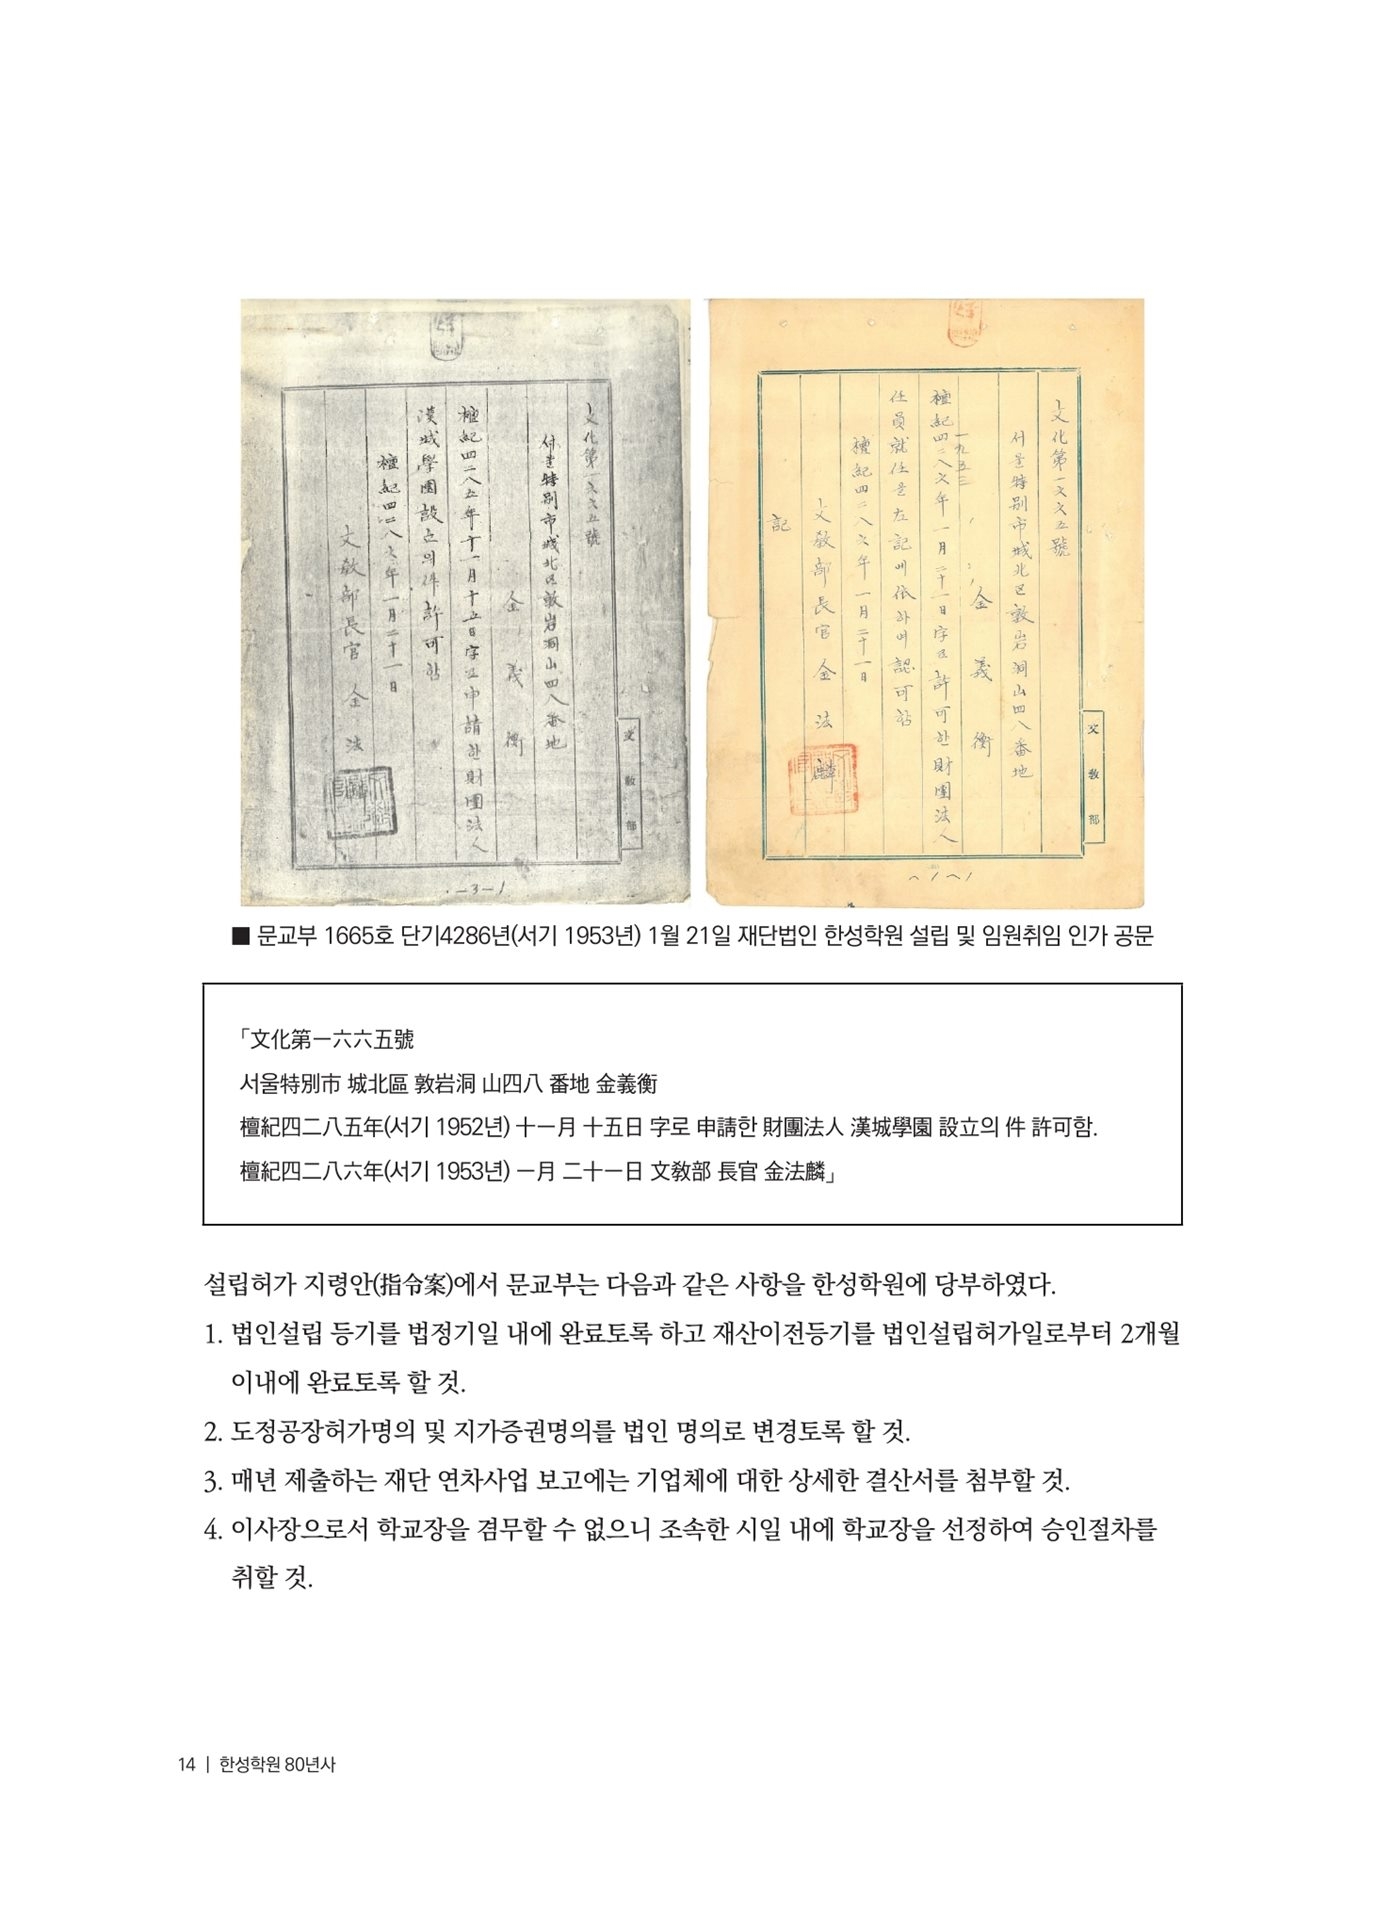 文化第一六六五號
서울特別市城北區敦岩洞山四八番地
金義衡
檀紀四二八五年十一月十五日字로申請한財團法人
漢城學園設立의件許可함
檀紀四二八六年一月二十一日
文敎部長官 金法
文敎部
-3-
文化第一六六五號
서울特別市城北區敦岩洞山四八番地
金義衡
一九五三
檀紀四二八六年一月二十一日字로許可한財團法人
任員就任을左記에依하여認可함
檀紀四二八六年一月二十一日
文敎部長官 金法麟
記
文敎部
■ 문교부 1665호 단기4286년(서기 1953년) 1월 21일 재단법인 한성학원 설립 및 임원취임 인가 공문
「文化第一六六五號
서울特別市 城北區 敦岩洞 山四八 番地 金義衡
檀紀四二八五年(서기 1952년) 十一月 十五日 字로 申請한 財團法人 漢城學園 設立의 件 許可함.
檀紀四二八六年(서기 1953년) 一月 二十一日 文敎部 長官 金法麟」
설립허가 지령안(指令案)에서 문교부는 다음과 같은 사항을 한성학원에 당부하였다.
1. 법인설립 등기를 법정기일 내에 완료토록 하고 재산이전등기를 법인설립허가일로부터 2개월
이내에 완료토록 할 것.
2. 도정공장허가명의 및 지가증권명의를 법인 명의로 변경토록 할 것.
3. 매년 제출하는 재단 연차사업 보고에는 기업체에 대한 상세한 결산서를 첨부할 것.
4. 이사장으로서 학교장을 겸무할 수 없으니 조속한 시일 내에 학교장을 선정하여 승인절차를
취할 것.
14 | 한성학원 80년사